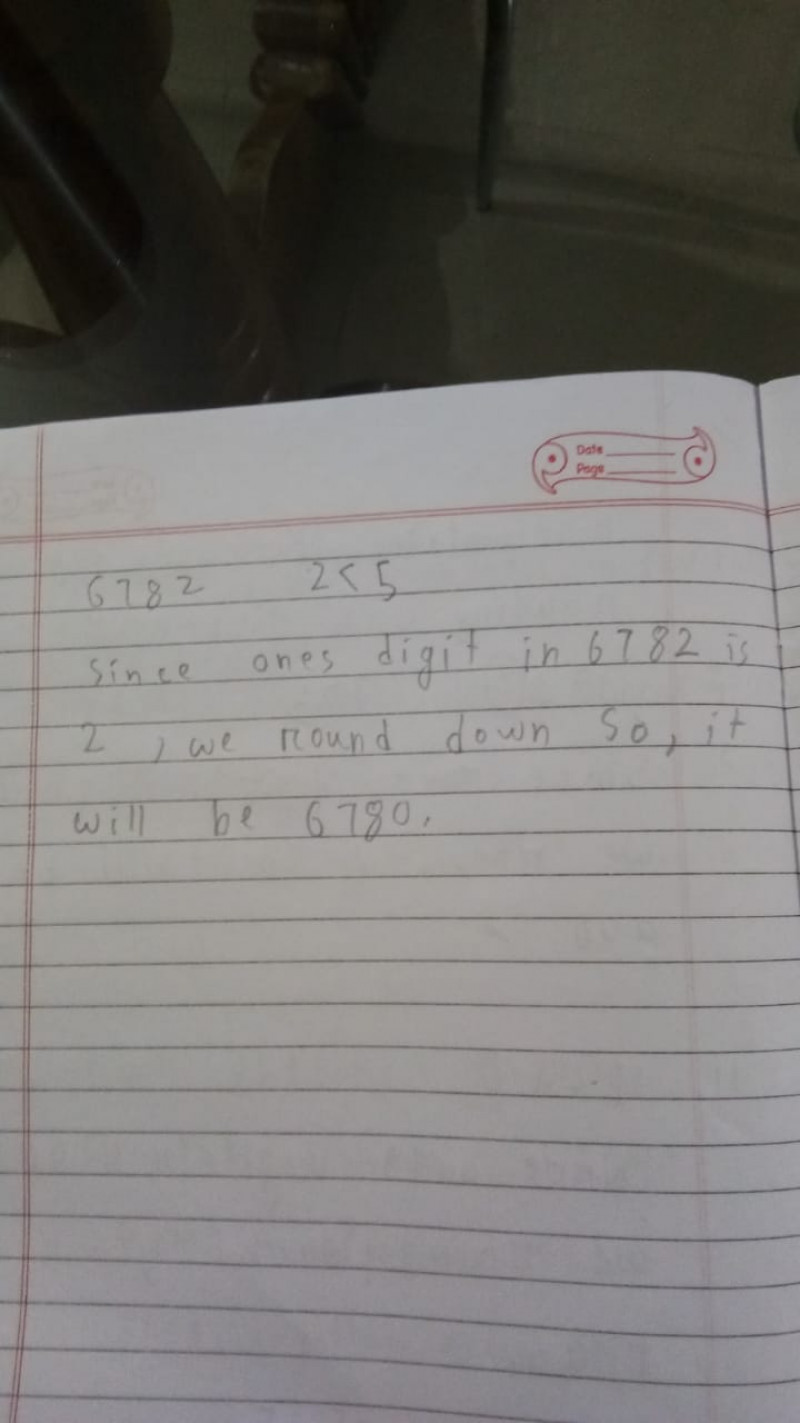 Date
Page
6782 2<5
Since ones digit in 6782 is
2 , we round down So, it
will be 6780.